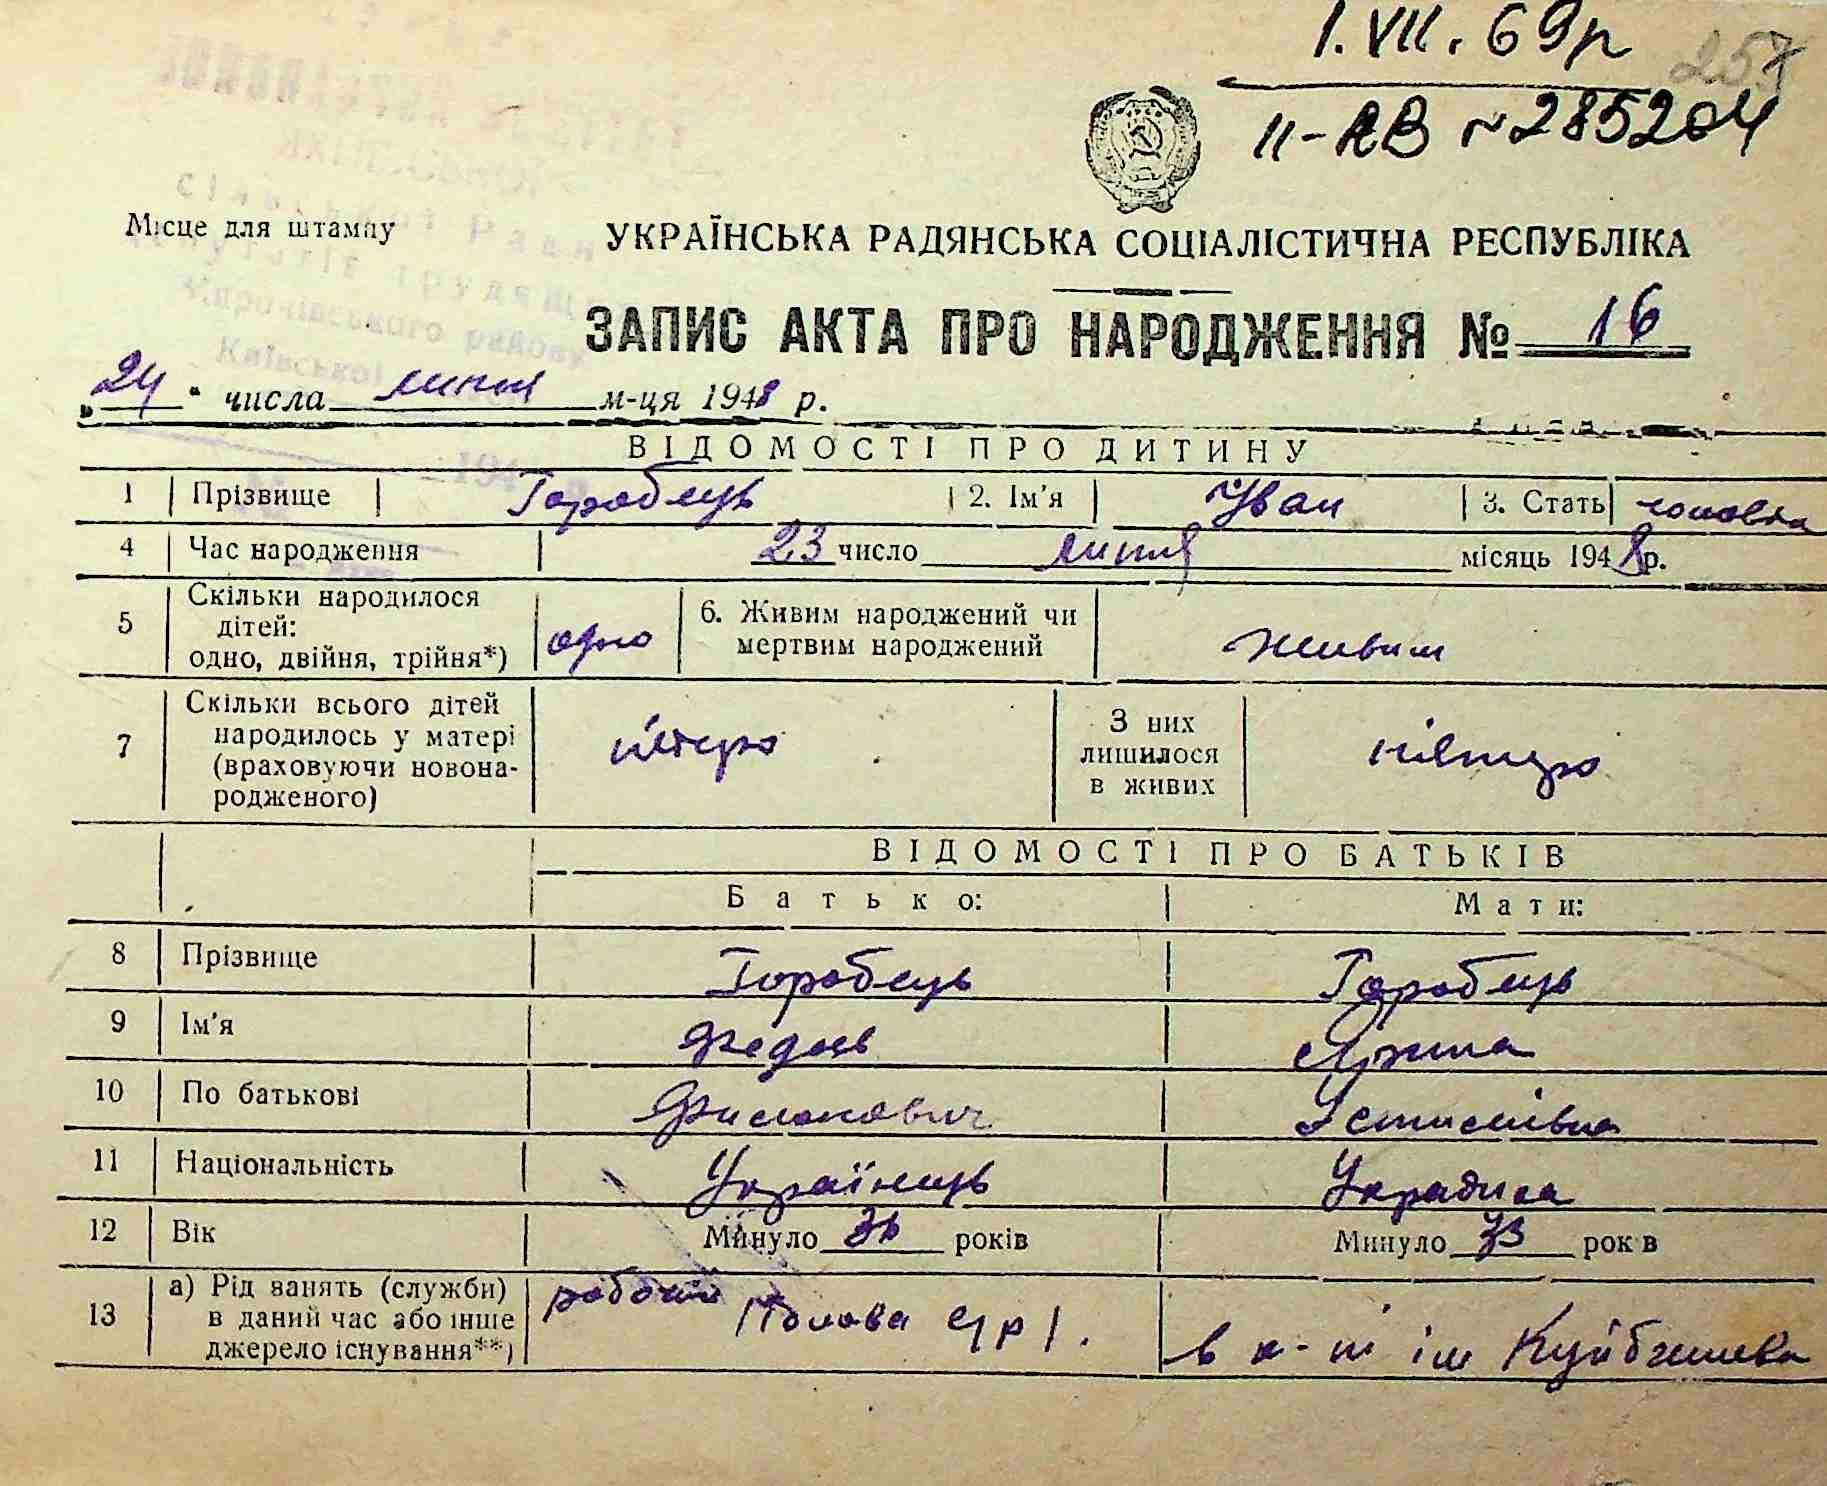 I. VII. 69р
257
II-АВ № 285204
Місце для штампу
УКРАЇНСЬКА РАДЯНСЬКА СОЦІАЛІСТИЧНА РЕСПУБЛІКА
ЗАПИС АКТА ПРО НАРОДЖЕННЯ № 16
„24“ числа липня м-ця 1948 р.
ВІДОМОСТІ ПРО ДИТИНУ
1 Прізвище Горобець 2. Ім'я Іван 3. Стать
4 Час народження 23 число липня місяць 1948 р.
5 Скільки народилося дітей: одно, двійня, трійня*) одно 6. Живим народжений чи мертвим народжений живим
7 Скільки всього дітей народилось у матері (враховуючи новонародженого) п'ятеро З них лишилося в живих п'ятеро
ВІДОМОСТІ ПРО БАТЬКІВ
Батько: Мати:
8 Прізвище Горобець Горобець
9 Ім'я Федось
10 По батькові
11 Національність Українець
12 Вік Минуло років Минуло 33 рок в
13 а) Рід занять (служби) в даний час або інше джерело існування**) робочий в к-пі ім Куйбишева